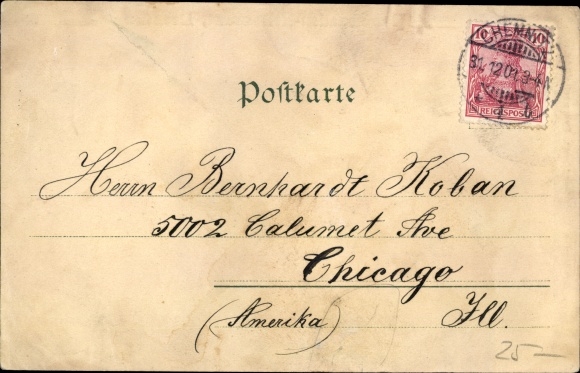 10 10
CHEMNITZ
31.12.01. 3-4 N.
REICHSPOST
Postkarte
Herrn Bernhardt Koban
5002 Calumet Ave
Chicago
(Amerika) Ill.
25—